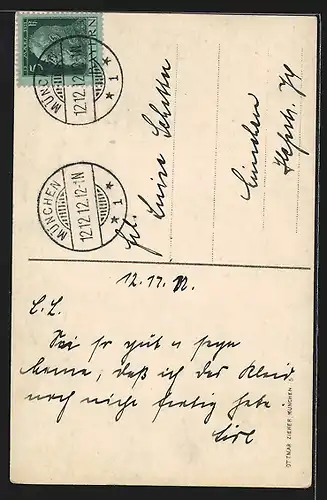 5
BAYERN
MÜNCHEN
12.12.12.12-1N
* 1 *
MÜNCHEN
12.12.12.12-1N
* 1 *
Frl. Luise
München
12.
L. L.
Sei so gut u sage
daß ich das Kleid
noch nicht fertig habe.
OTTMAR ZIEHER MÜNCHEN